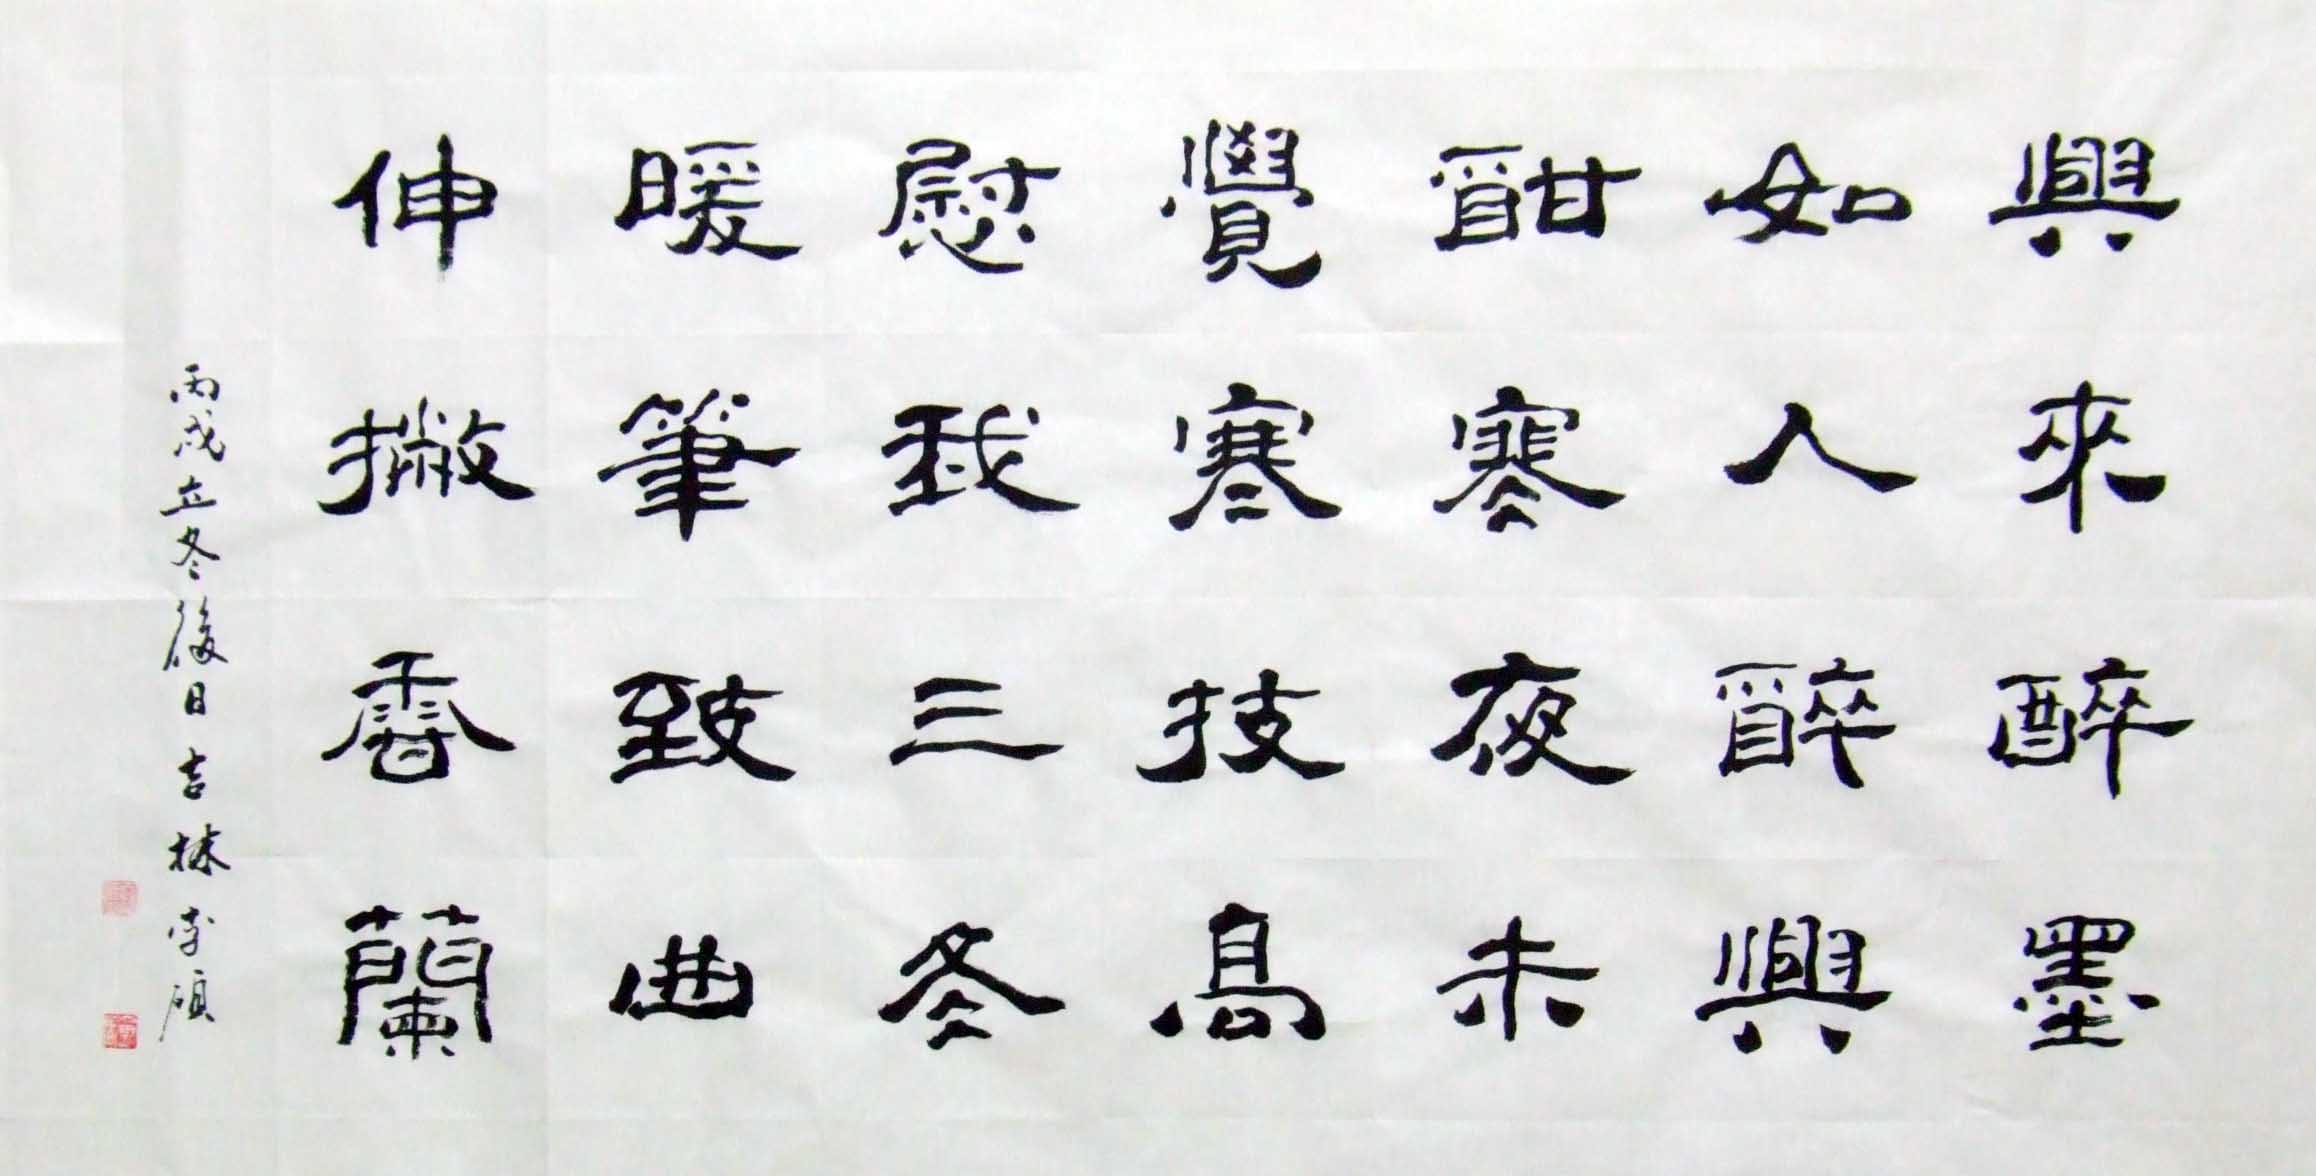 興來醉墨
如人醉興
酣寒夜未
覺寒技高
慰我三冬
暖筆致曲
伸撇香蘭
丙戌立冬後日吉林李碩